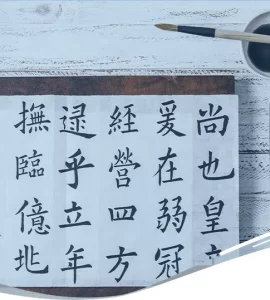 尚也皇
爰在弱冠
經營四方
逮乎立年
撫臨億兆